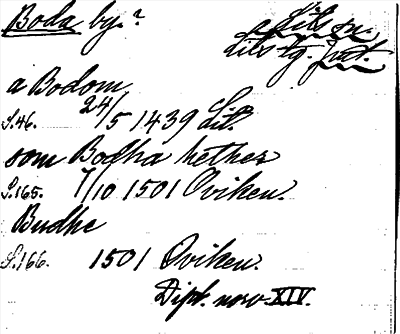 Boda by.?
Lits sn.
Lits tg. Jtl.
a Bodom
S.46. 24/5 1439 Lit.
som Bodha hether
S.165. 7/10 1501 Oviken.
Budhe
S.166. 1501 Oviken.
Dipl. norv. XIV.